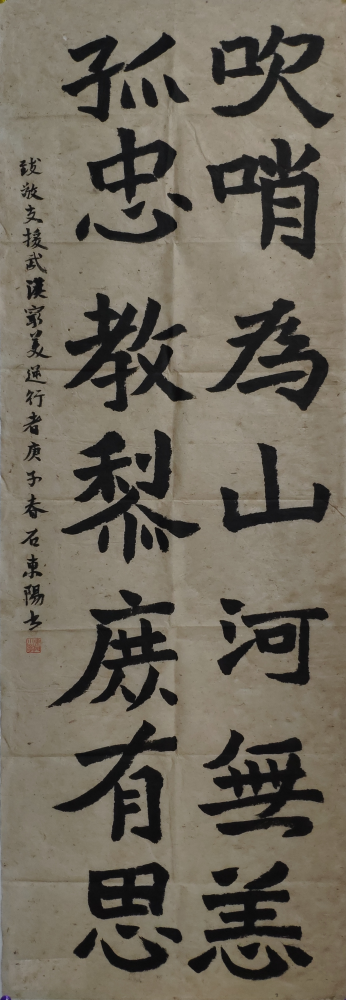 吹哨為山河無恙
孤忠教黎庶有思
致敬支援武漢最美逆行者庚子春石東陽書